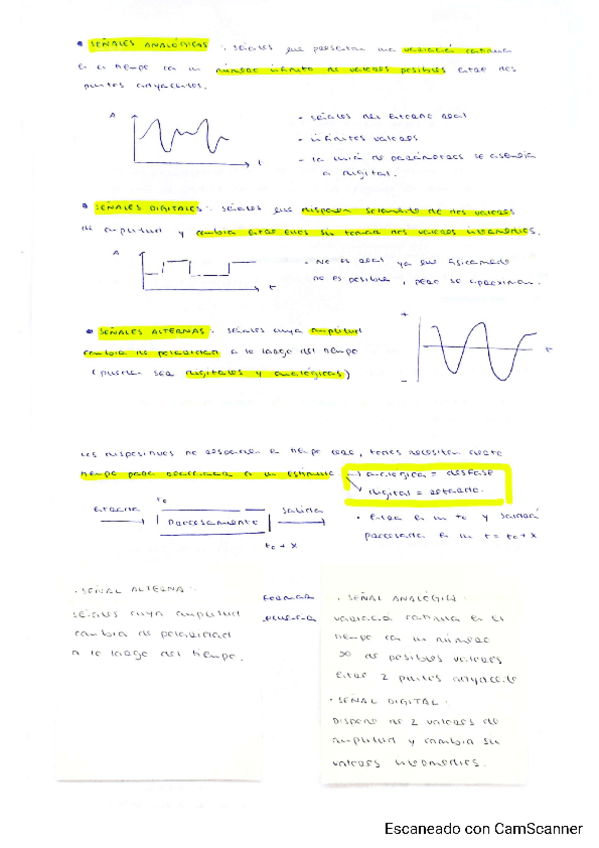 • SEÑALES ANALÓGICAS : señales que presentan una variación continua
en el tiempo con un número infinito de valores posibles entre dos
puntos adyacentes.
A
t
- señales del entorno real
- infinitos valores
- la
a digital.
• SEÑALES DIGITALES : señales que disponen solamente de dos valores
de amplitud y cambia entre ellos sin tomar dos valores intermedios.
A
t
- No es real ya que físicamente
no es posible, pero se aproximan.
• SEÑALES ALTERNAS : señales cuya amplitud
cambia de polaridad a lo largo del tiempo
(pueden ser digitales y analógicas)
+
t
-
Los dispositivos no responden en tiempo real, todos necesitan cierto
tiempo para reaccionar a un estímulo
→ analógica = desfase
digital = retardo.
to
entrada
procesamiento
salida
to + x
• entra en un to y saldrá
procesada en un t = to + x
. SEÑAL ALTERNA :
señales cuya amplitud
cambia de polaridad
a lo largo del tiempo.
. SEÑAL ANALÓGICA :
variación continua en el
tiempo con un número
∞ de posibles valores
entre 2 puntos adyacente
. SEÑAL DIGITAL :
Dispone de 2 valores de
amplitud y cambia sin
valores intermedios.
Escaneado con CamScanner